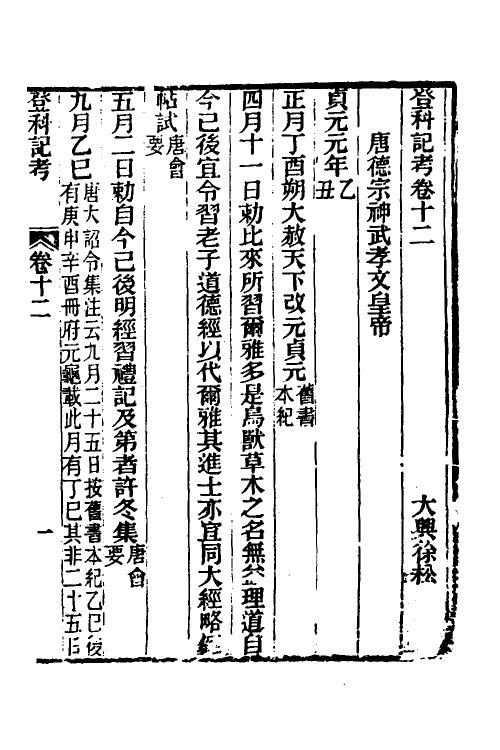 登科記考卷十二
大興徐松
唐德宗神武孝文皇帝
貞元元年乙丑
正月丁酉朔大赦天下改元貞元舊書本紀
四月十一日勅比來所習爾雅多是鳥獸草木之名無益理道自
今已後宜令習老子道德經以代爾雅其進士亦宜同大經略例
帖試唐會要
五月二日勅自今已後明經習禮記及第者許冬集唐會要
九月乙巳唐大詔令集注云九月二十五日按舊書本紀乙巳後
有庚申辛酉冊府元龜載此月有丁巳其非二十五日
登科記考
卷十二
一